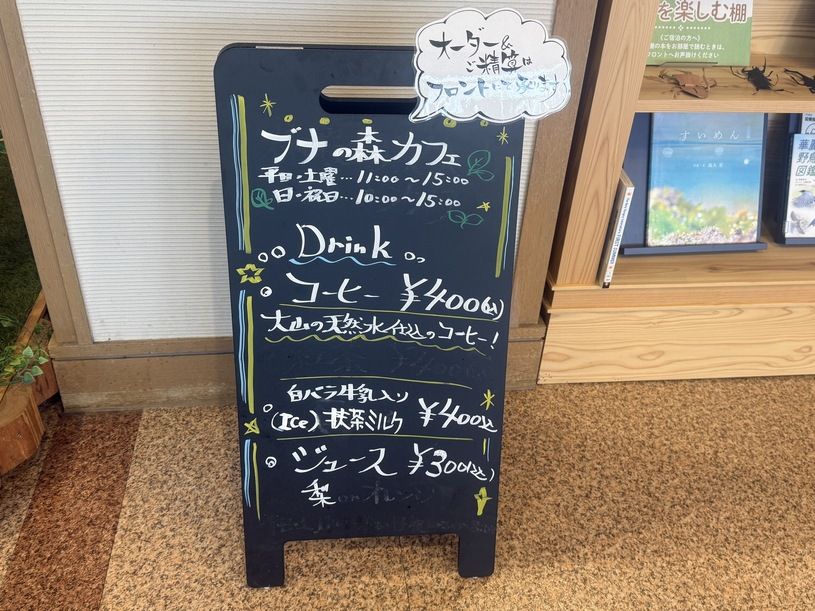 オーダー&
ご精算は
フロントにて承ります
ブナの森カフェ
平日・土曜…11:00〜15:00
日・祝日…10:00〜15:00
Drink
コーヒー ¥400(込)
大山の天然水仕込のコーヒー!
白バラ牛乳入り
(Ice) 抹茶ミルク ¥400込
ジュース ¥300(込)
梨 or オレンジ
を楽しむ棚
《ご宿泊の方へ》
の本をお部屋で読むときは、
フロントへお声掛けください
すいめん
野鳥
図鑑